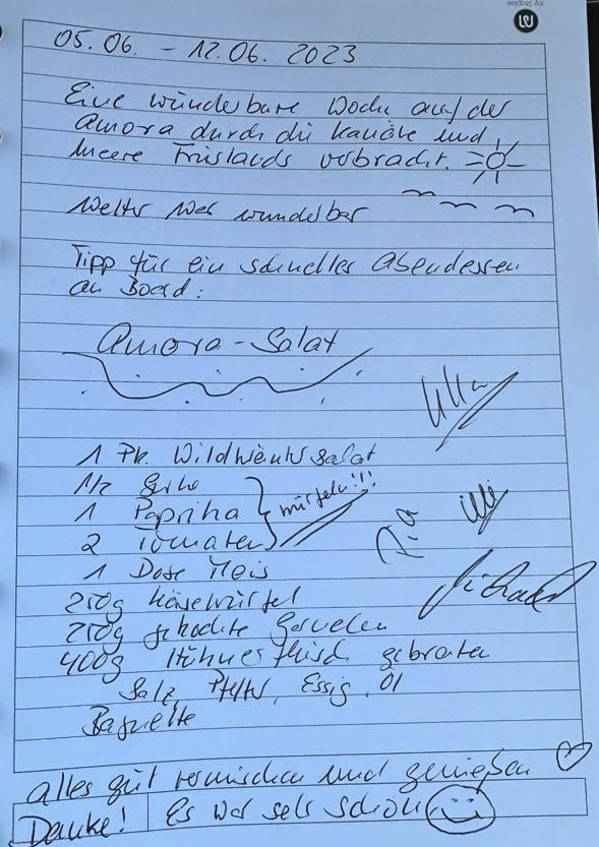 by Staples
05.06. - 12.06. 2023
Eine wunderbare Woche auf der
Amora durch die Kanäle und
Meere Frieslands verbracht.
Wetter war wunderbar
Tipp für ein schnelles Abendessen
an Board:
Amora - Salat
1 Pk. Wildkräutersalat
1/2 Gurke
1 Paprika
2 Tomaten
würfeln!!!
1 Dose Mais
250g Käsewürfel
250g gekochte Garnelen
400g Hühnerfleisch gebraten
Salz, Pfeffer, Essig, Öl
Baguette
Ulla
Pia
Uli
Michael
alles gut vermischen und genießen
Danke! Es war sehr schön